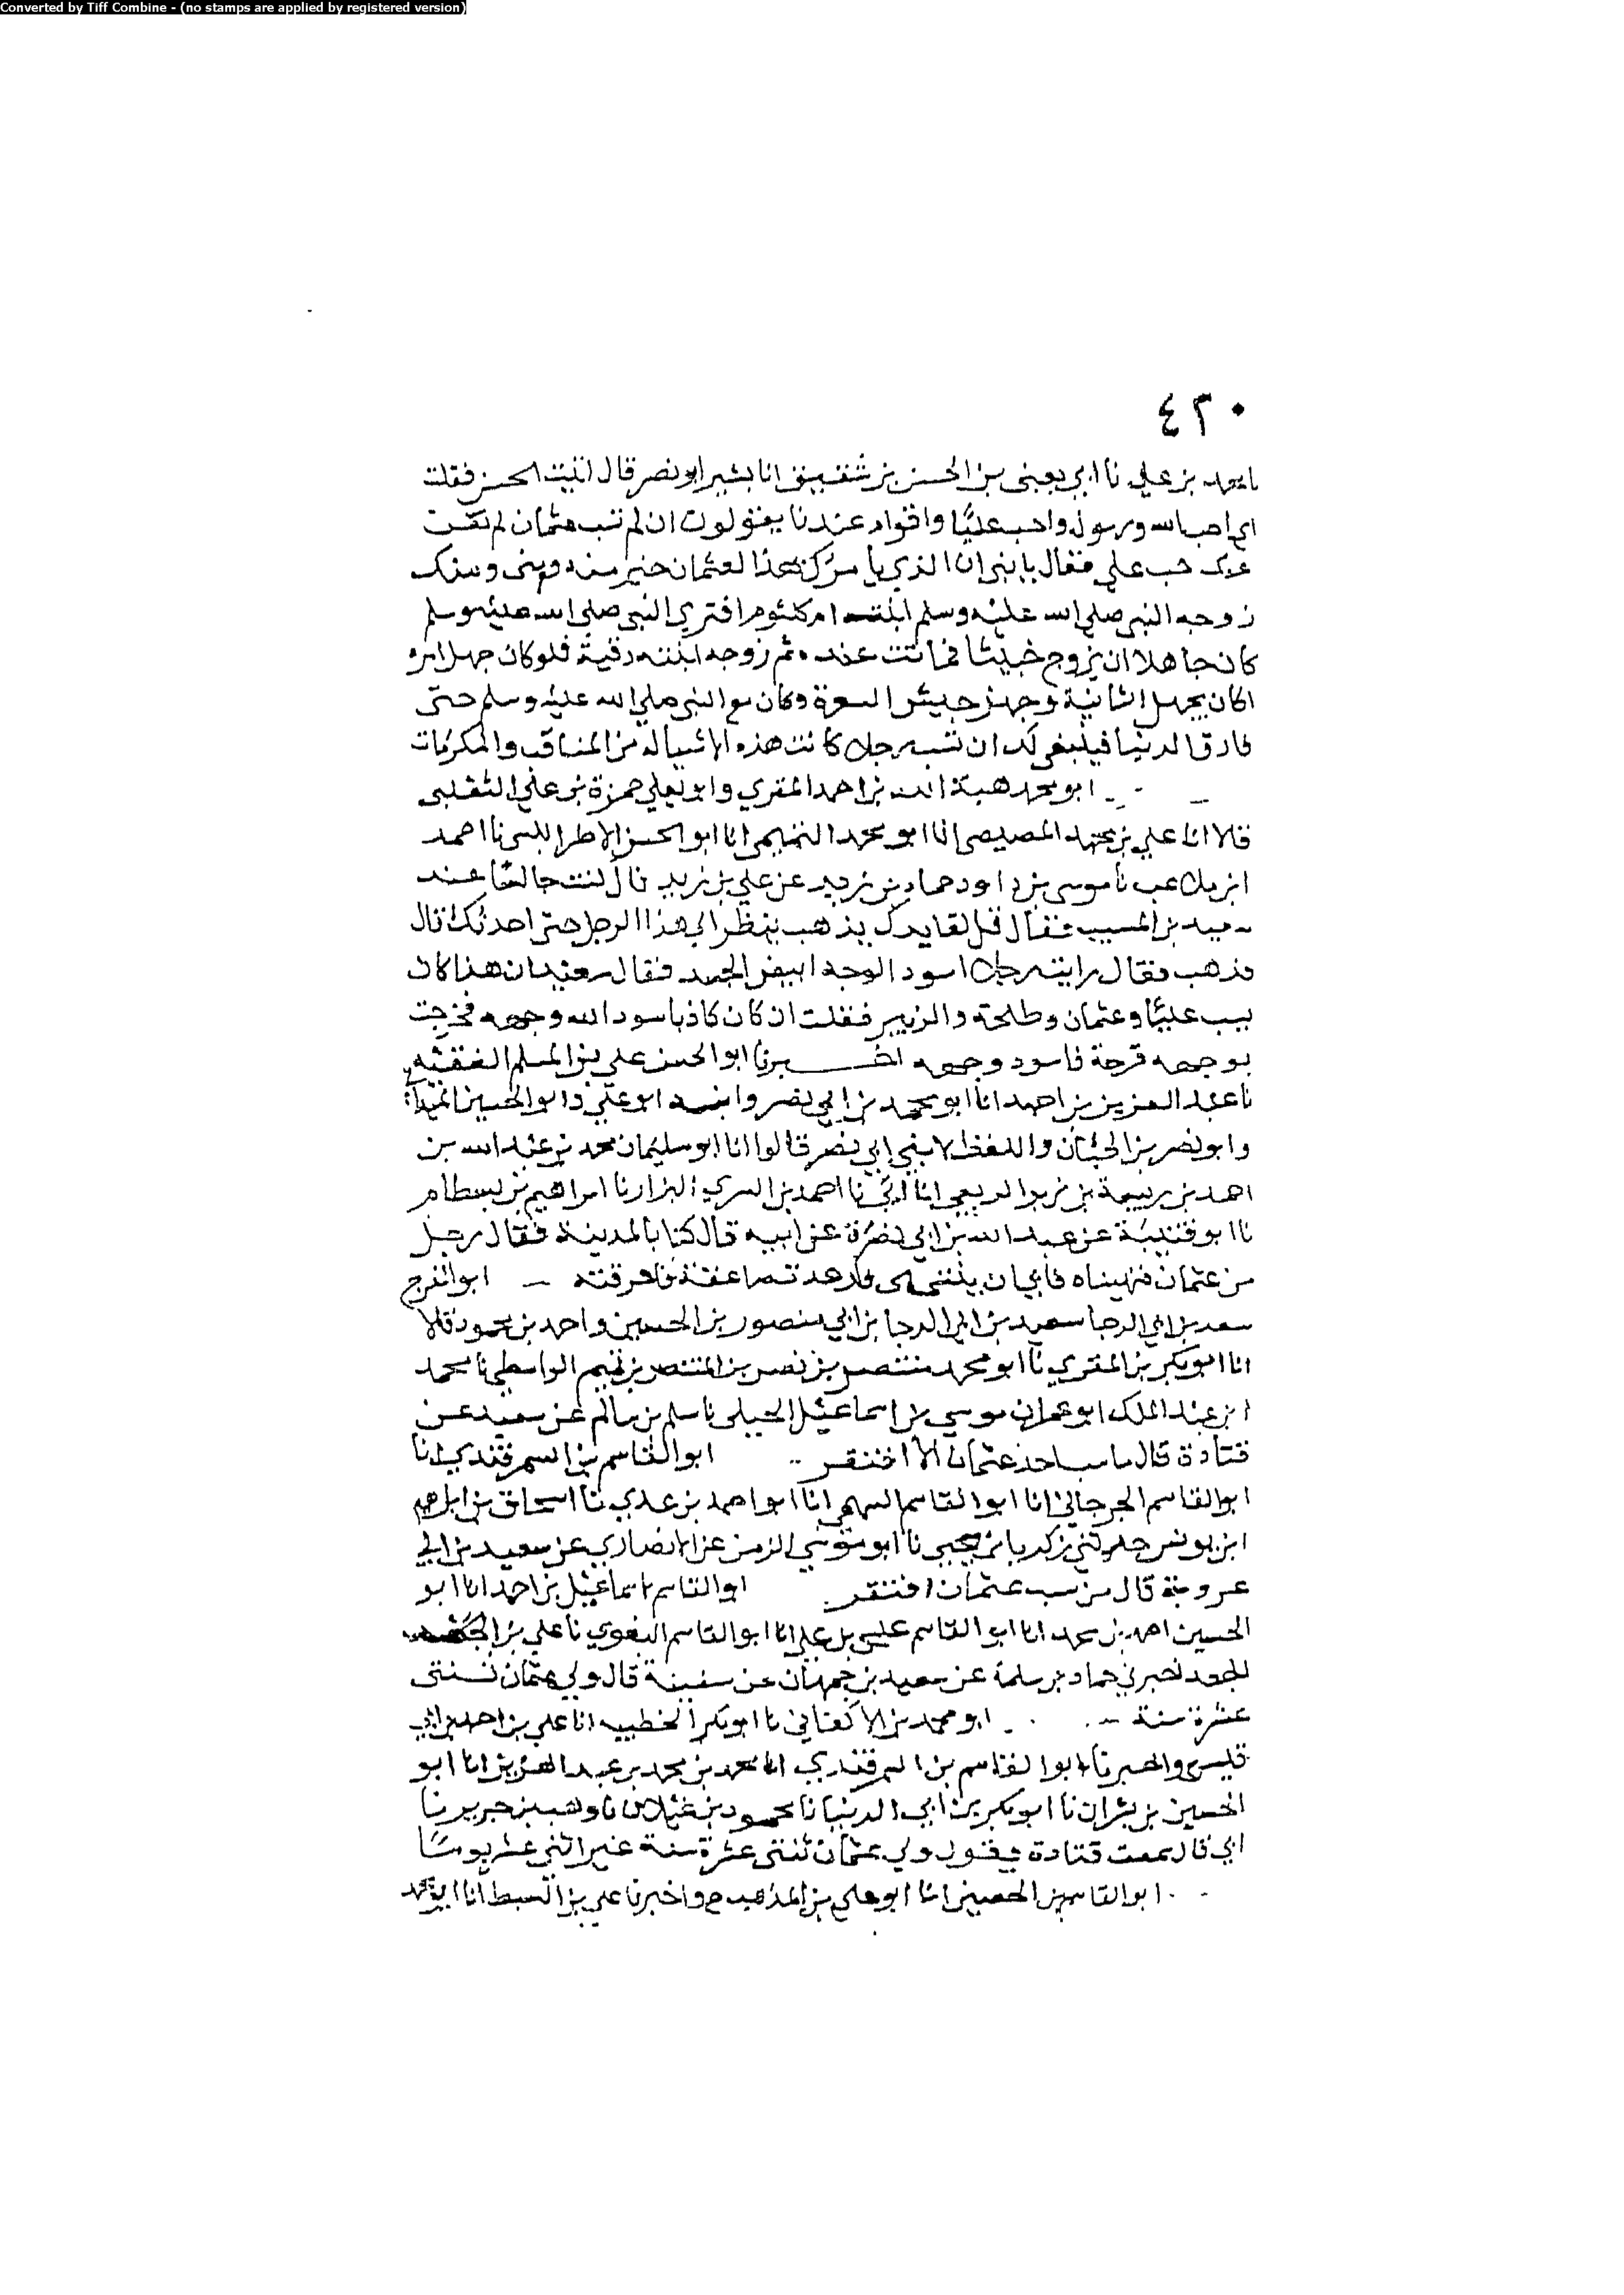 Converted by Tiff Combine - (no stamps are applied by registered version)
٤٢٠
بن علي نا ابي يعني بن الحسن بن شقيق انا بشير ابو نصر قال اتيت الحسن فقلت
اي احب الله ورسوله واحب عليًا واقوام عندنا يقولون ان لم تسب عثمان لم
حب علي فقال يا بني ان الذي يأمرك بهذا لعثمان خير منه ومني ومنك
زوجه النبي صلى الله عليه وسلم ابنته ام كلثوم افتري النبي صلى الله عليه وسلم
كان جاهلا ان يزوج خبيثا فماتت عنده ثم زوجه ابنته رقية فلو كان جهل امره
اكان يجهل الثانية وجهز جيش العسرة وكان مع النبي صلى الله عليه وسلم حتى
فارق الدنيا فينبغي لك ان تسب رجل كانت هذه الاشيا له من المناقب والمكرمات
ابو محمد هبة الله بن احمد المقري وابو يعلي حمزة بن علي الثعلبي
قالا انا علي بن محمد المصيصي انا ابو محمد التميمي انا ابو الحسن الاطرابلسي نا احمد
ابن ملاعب نا موسى بن داود حماد بن زيد عن علي بن زيد قال كنت جالسًا عند
سعيد بن المسيب فقال قل لقايدك يذهب ينظر الى هذا الرجل حتى احدثك قال
فذهب فقال رايته رجل اسود الوجه ابيض الجسد فقال سعيد ان هذا كان
يسب عليًا وعثمان وطلحة والزبير فقلت ان كان كاذبا سود الله وجهه فخرجت
بوجهه قرحة فاسود وجهه اخبرنا ابو الحسن علي بن المسلم الفقيه
نا عبد العزيز بن احمد انا ابو محمد بن ابي نصر وابنه ابو علي وابو الحسين
وابو نصر بن الجبان واللفظ لابني ابي نصر قالوا انا ابو سليمان محمد بن عبد الله بن
احمد بن ربيعة بن زبر الربعي انا ابي نا احمد بن السري البزار نا ابراهيم بن بسطام
نا ابو قتيبة عن عبد الله بن ابي نضرة عن ابيه قال كنا بالمدينة فقال رجل
من عثمان فنهيناه فابى ان ينتهي فارعدت صاعقة فاحرقته ابو الفرج
سعيد بن ابي الرجا سعيد بن ابي الرجا بن ابي منصور بن الحسين واحمد بن محمود قالا
انا ابو بكر بن المقري نا ابو محمد منتصر بن نصر بن المنتصر بن تميم الواسطي نا محمد
ابن عبد الملك ابو عمران موسى بن اسماعيل الجبلي نا سلم بن سالم عن سعيد عن
قتادة قال ما سب احد عثمان الا افتقر ابو القاسم بن السمرقندي انا
ابو القاسم الجرجاني انا ابو القاسم السهمي انا ابو احمد بن عدي نا اسحاق بن ابراهيم
ابن يونس حدثني زكريا بن يحيى نا ابو موسى الزمن عن الانصاري عن سعيد بن ابي
عروبة قال من سب عثمان افتقر ابو القاسم اسماعيل بن احمد انا ابو
الحسين احمد بن محمد انا ابو القاسم عيسى بن علي انا ابو القاسم البغوي نا علي بن
الجعد اخبرني حماد بن سلمة عن سعيد بن جمهان عن سفينة قال ولي عثمان ثنتى
عشرة سنة ابو محمد بن الاكفاني نا ابو بكر الخطيب انا علي بن احمد بن ابي
قيس واخبرنا ابو القاسم بن السمرقندي انا محمد بن محمد بن عبد العزيز انا ابو
الحسين بن بشران نا ابو بكر بن ابي الدنيا نا محمود بن غيلان نا وهب بن جرير نا
ابي قال سمعت قتادة يقول ولي عثمان ثنتى عشرة سنة غير اثني عشر يومًا
ابو القاسم بن الحصين انا ابو علي بن المذهب ح واخبرنا علي بن السبط انا ابو محمد